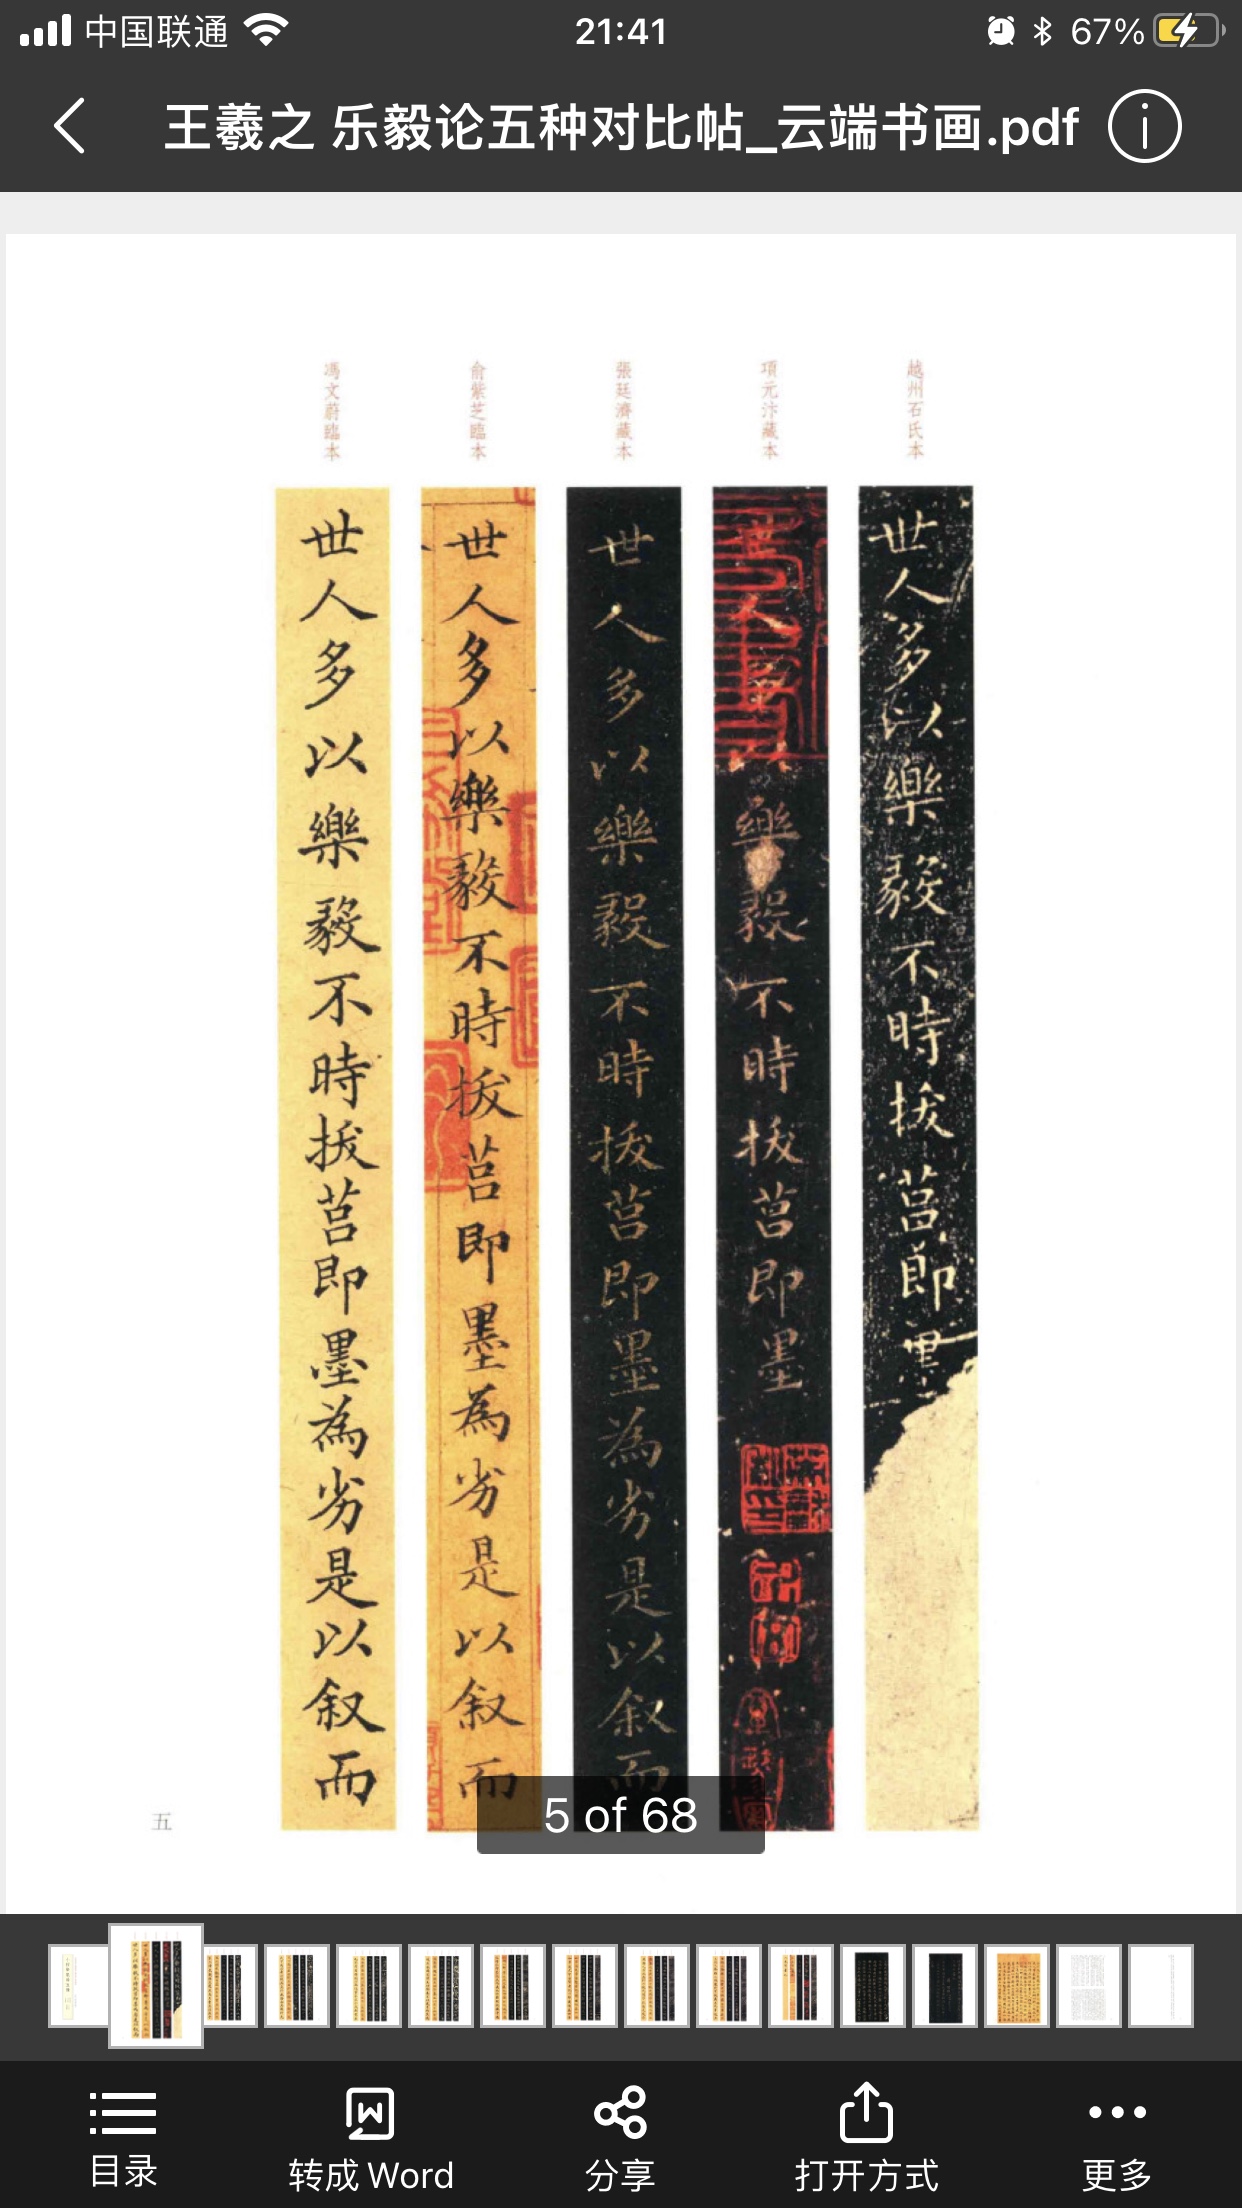 中国联通
21:41
67%
王羲之 乐毅论五种对比帖_云端书画.pdf
越州石氏本
項元汴藏本
張廷濟藏本
俞紫芝臨本
馮文蔚臨本
世人多以樂毅不時拔莒即墨
世人多以樂毅不時拔莒即墨
世人多以樂毅不時拔莒即墨為劣是以叙而
世人多以樂毅不時拔莒即墨為劣是以叙而
世人多以樂毅不時拔莒即墨為劣是以叙而
五
5 of 68
目录
转成 Word
分享
打开方式
更多